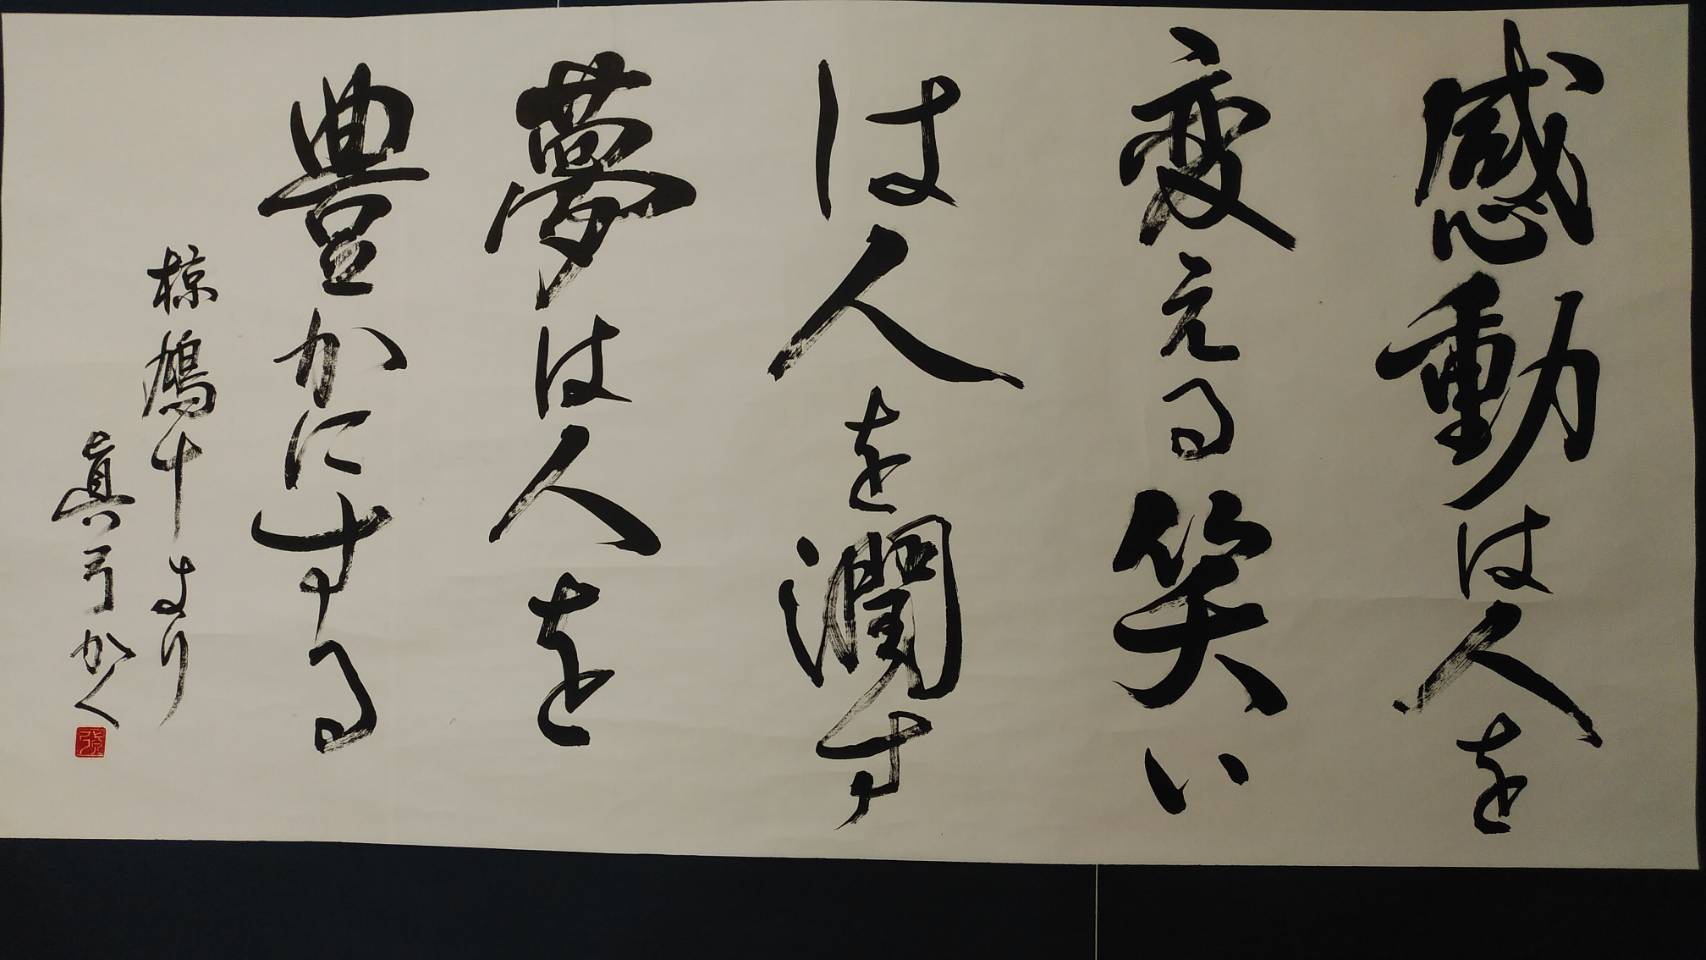 感動は人を
変える笑い
は人を潤す
夢は人を
豊かにする
椋鳩十より
真弓かく